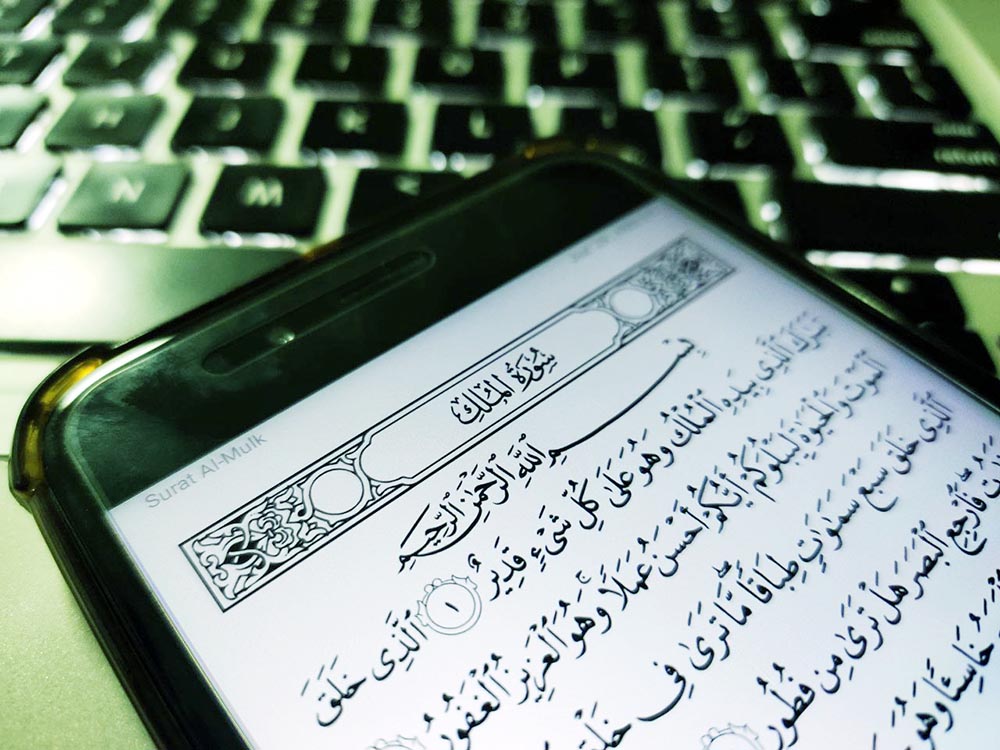 Surat Al-Mulk
سُورَةُ المُلْكِ
بِسْمِ ٱللَّهِ ٱلرَّحْمَٰنِ ٱلرَّحِيمِ
تَبَٰرَكَ ٱلَّذِى بِيَدِهِ ٱلْمُلْكُ وَهُوَ عَلَىٰ كُلِّ شَىْءٍ قَدِيرٌ ١ ٱلَّذِى خَلَقَ
ٱلْمَوْتَ وَٱلْحَيَوٰةَ لِيَبْلُوَكُمْ أَيُّكُمْ أَحْسَنُ عَمَلًا وَهُوَ ٱلْعَزِيزُ ٱلْغَفُورُ
ٱلَّذِى خَلَقَ سَبْعَ سَمَٰوَٰتٍ طِبَاقًا مَّا تَرَىٰ فِى خَلْقِ
فَٱرْجِعِ ٱلْبَصَرَ هَلْ تَرَىٰ مِن فُطُورٍ
خَاسِئًا وَهُوَ
N M K L
return